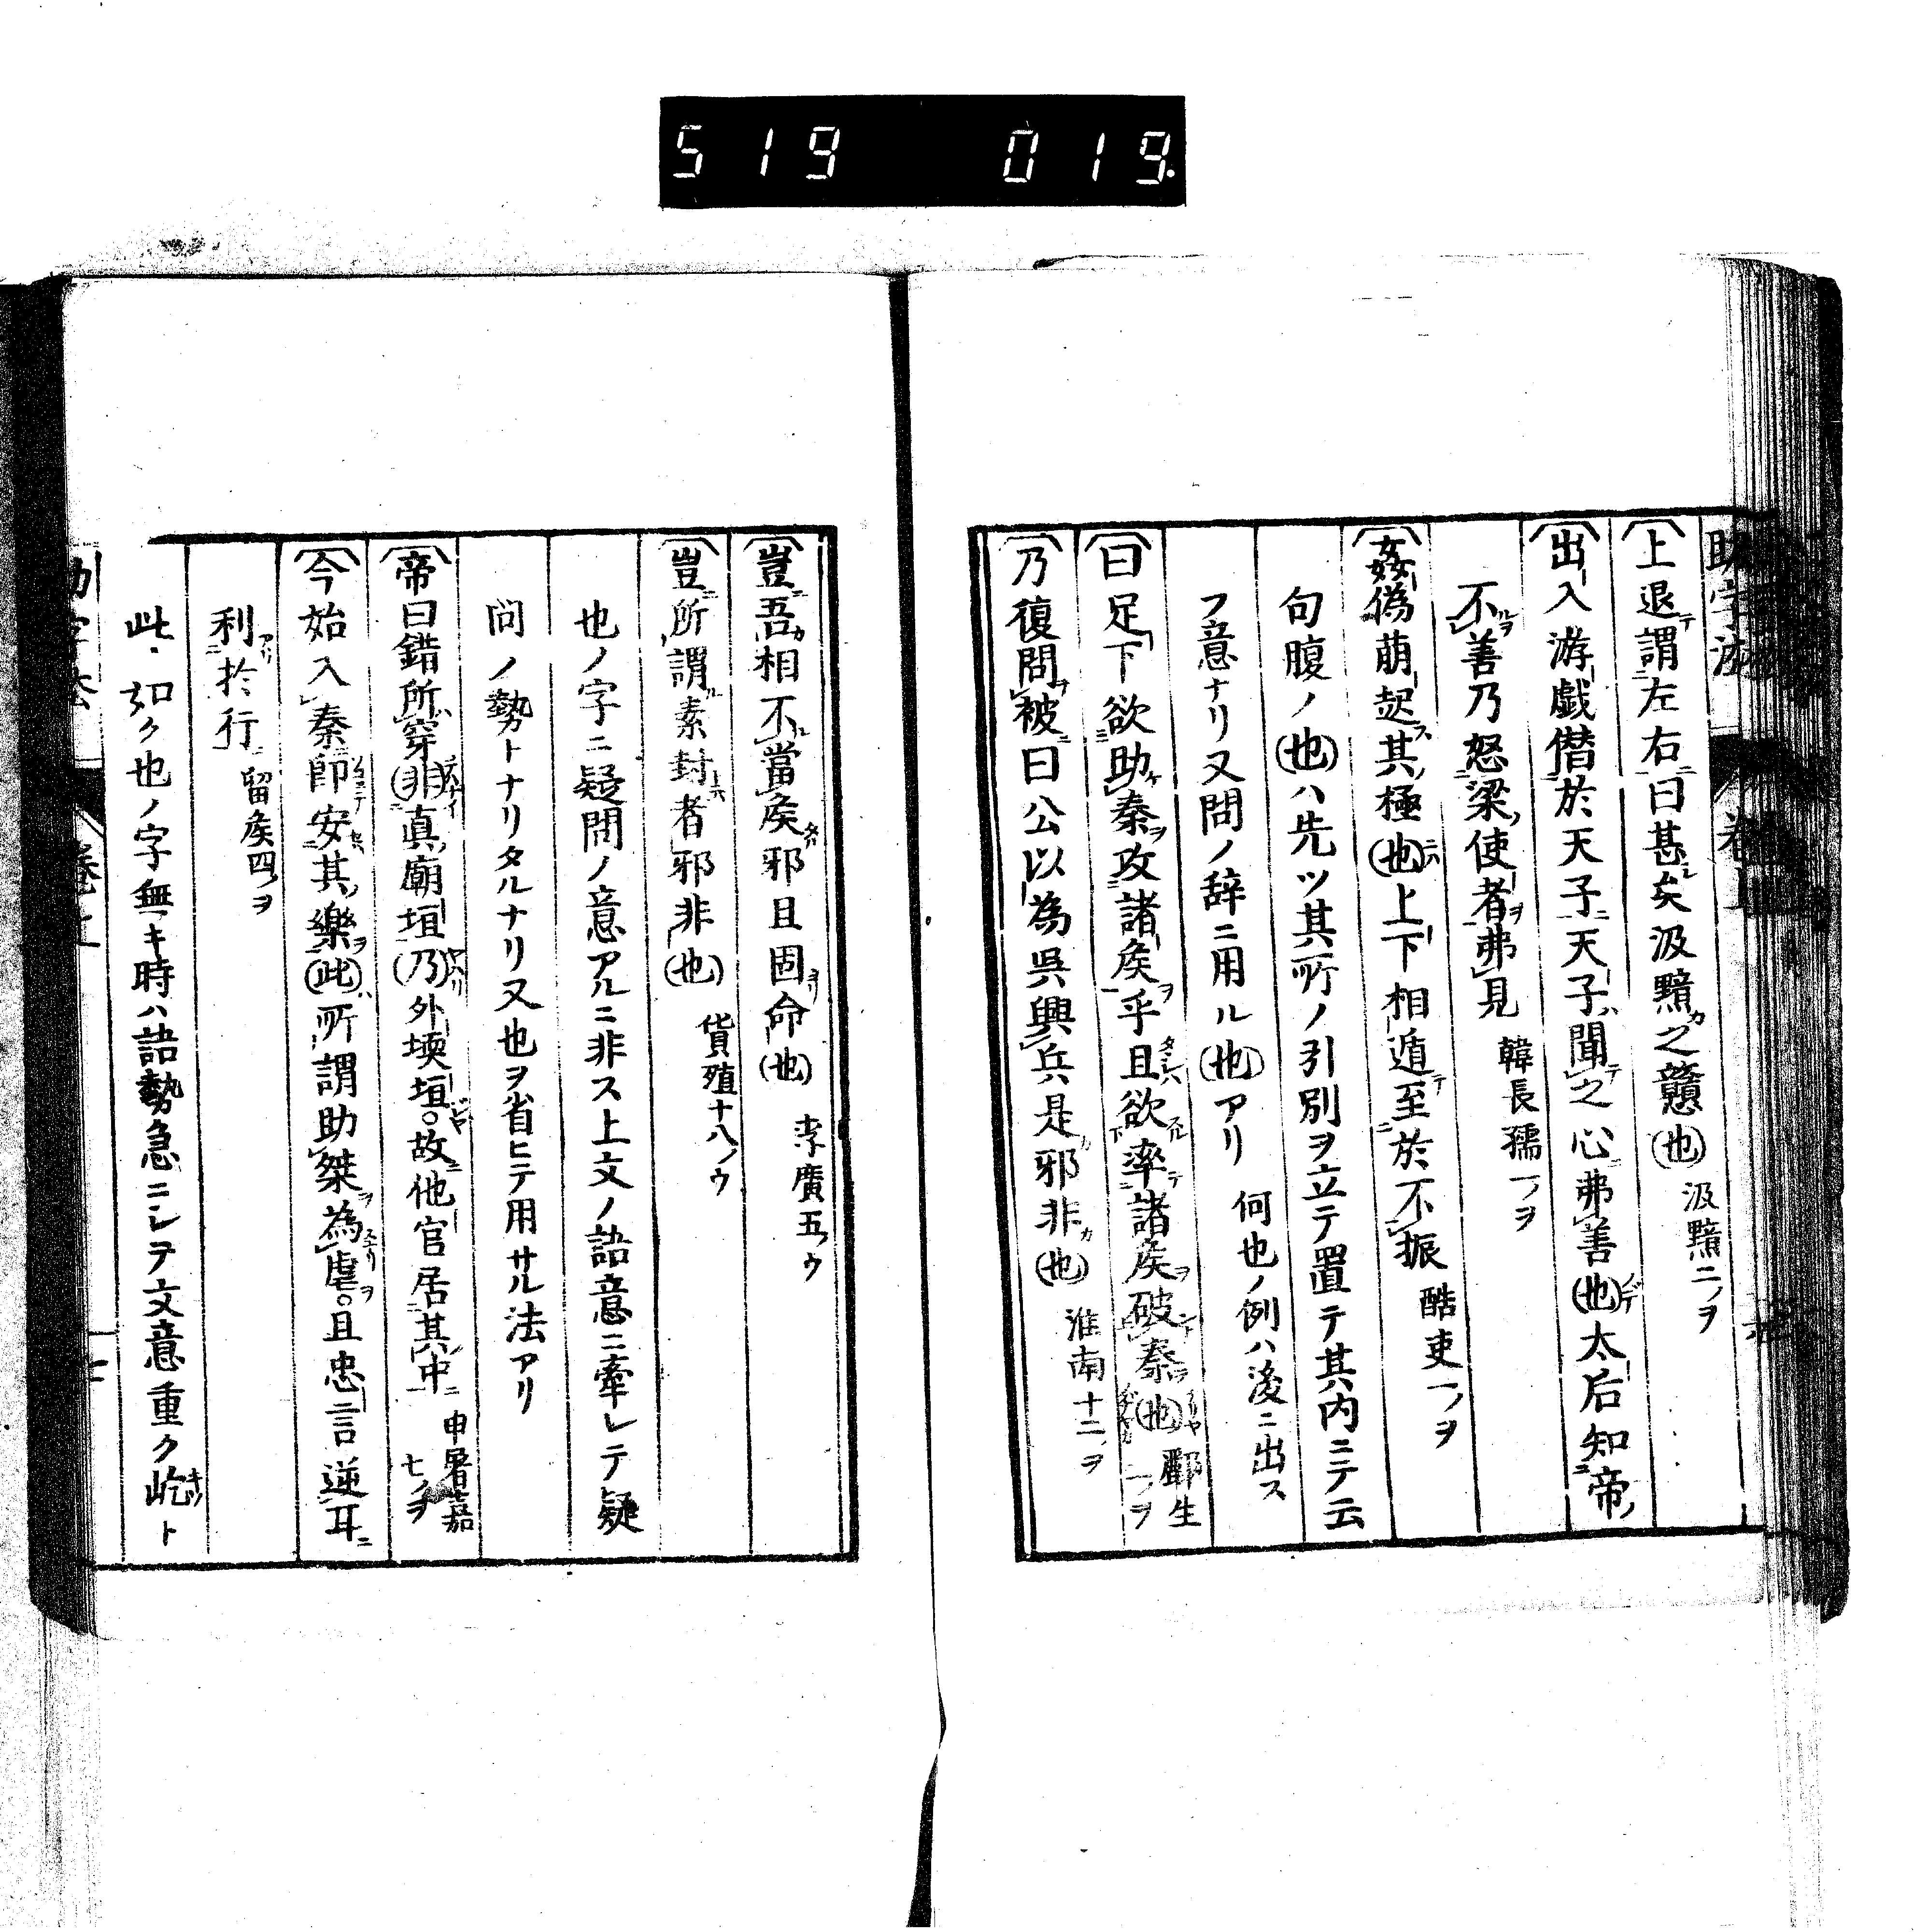 519 019.
上退謂左右曰甚矣汲黯之戇也 汲黯二ノヲ
出入游戯僭於天子天子聞之心弗善也太后知帝
不善乃怒梁使者弗見 韓長孺一ノヲ
姦偽萌起其極也上下相遁至於不振 酷吏一ノヲ
句腹ノ也ハ先ツ其所ノ引別ヲ立テ置テ其内ニテ云
フ意ナリ又問ノ辞ニ用ル也アリ 何也ノ例ハ後ニ出ス
曰足下欲助秦攻諸矦乎且欲率諸矦破秦也 酈生一ノヲ
乃復問被曰公以為呉興兵是邪非也 淮南十二ノヲ
豈吾相不當矦邪且固命也 李廣五ノウ
豈所謂素封者邪非也 貨殖十八ノウ
也ノ字ニ疑問ノ意アルニ非ス上文ノ語意ニ牽レテ疑
問ノ勢トナリタルナリ又也ヲ省ヒテ用サル法アリ
帝曰錯所穿非真廟垣乃外堧垣故他官居其中 申屠嘉七ノヲ
今始入秦即安其樂此所謂助桀為虐且忠言逆耳
利於行 留矦四ノヲ
此如ク也ノ字無キ時ハ語勢急ニシテ文意重ク屹ト